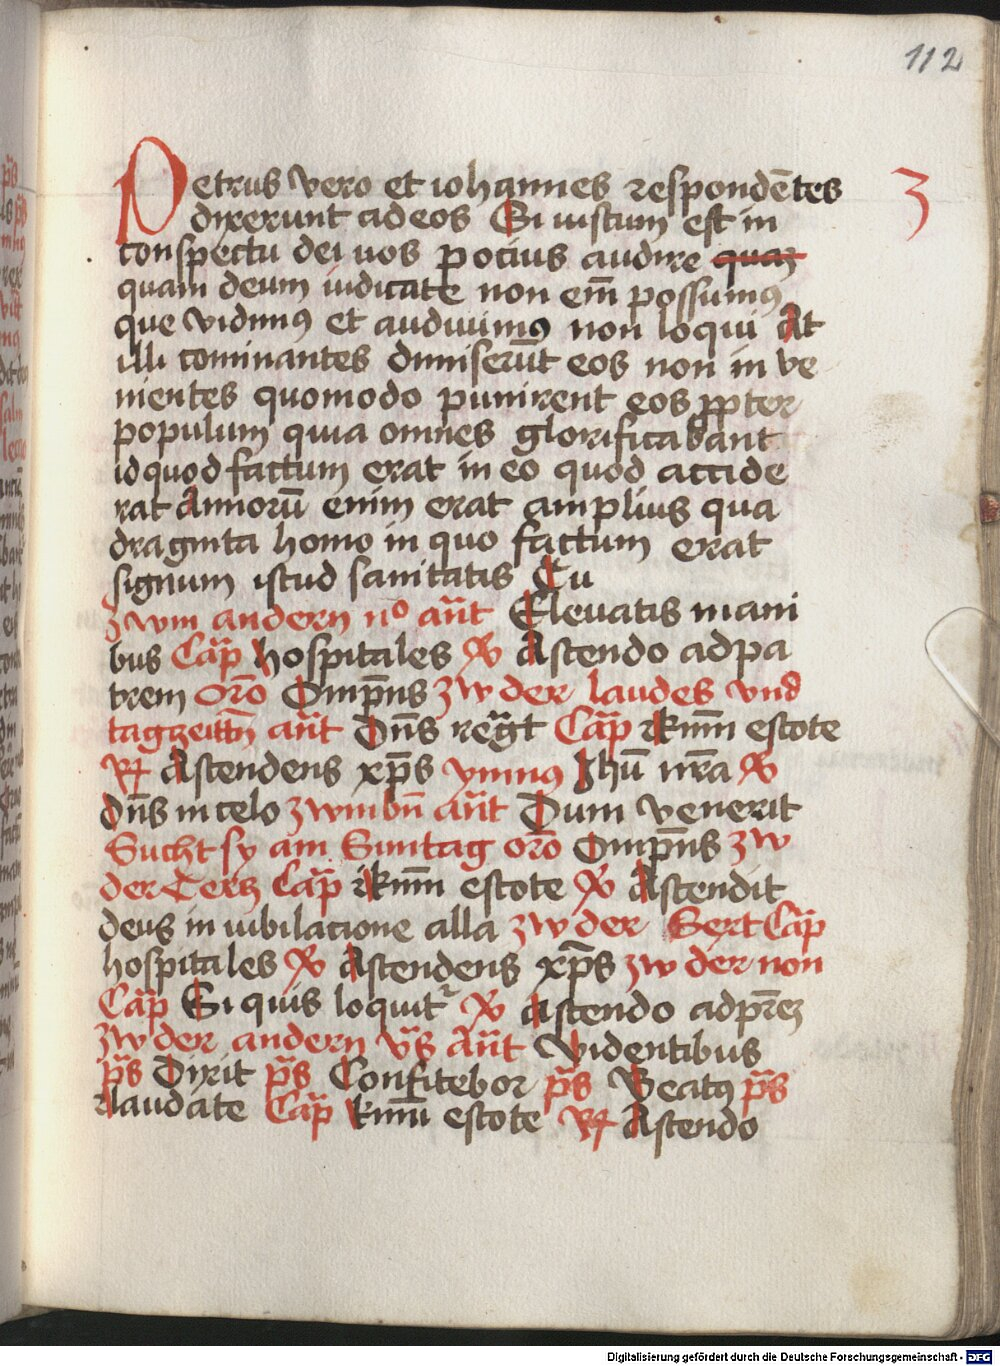 112
3
Petrus vero et iohannes respondētes
dixerunt ad eos Si iustum est in
conspectu dei uos pocius audire quaz
quam deum iudicate non em̄ possumus
que vidimus et audiuimus non loqui At
illi cominantes dimiserūt eos non in ve
nientes quomodo punirent eos propter
populum quia omnes glorificabant
id quod factum erat in eo quod accide
rat Annorū enim erat amplius qua
draginta homo in quo factum erat
signum istud sanitatis Tu
zwm andern no an̄t Eleuatis mani
bus Cap̄ hospitales V Ascendo ad pa
trem oro Omp̄ns zw der laudes vnd
tagzeittn̄ an̄t Dn̄s regt Cap̄ rkmm̄ estote
R Ascendens xp̄s ymnus Jhū nrā V
Dn̄s in celo zwm bn̄ an̄t Dum venerit
Sucht sy am Suntag oro Omp̄ns zw
der Tercz Cap̄ rkmm̄ estote V Ascendit
deus in iubilacione alla zw der Sext Cap̄
hospitales V Ascendens xp̄s zw der non
Cap̄ Si quis loquitr V Ascendo ad prēz
zw der andern vs̄ An̄t Videntibus
ps̄ Dixit ps̄ Confitebor ps̄ Beatus ps̄
laudate Cap̄ rkmm̄ estote R Ascendo
Digitalisierung gefördert durch die Deutsche Forschungsgemeinschaft - DFG